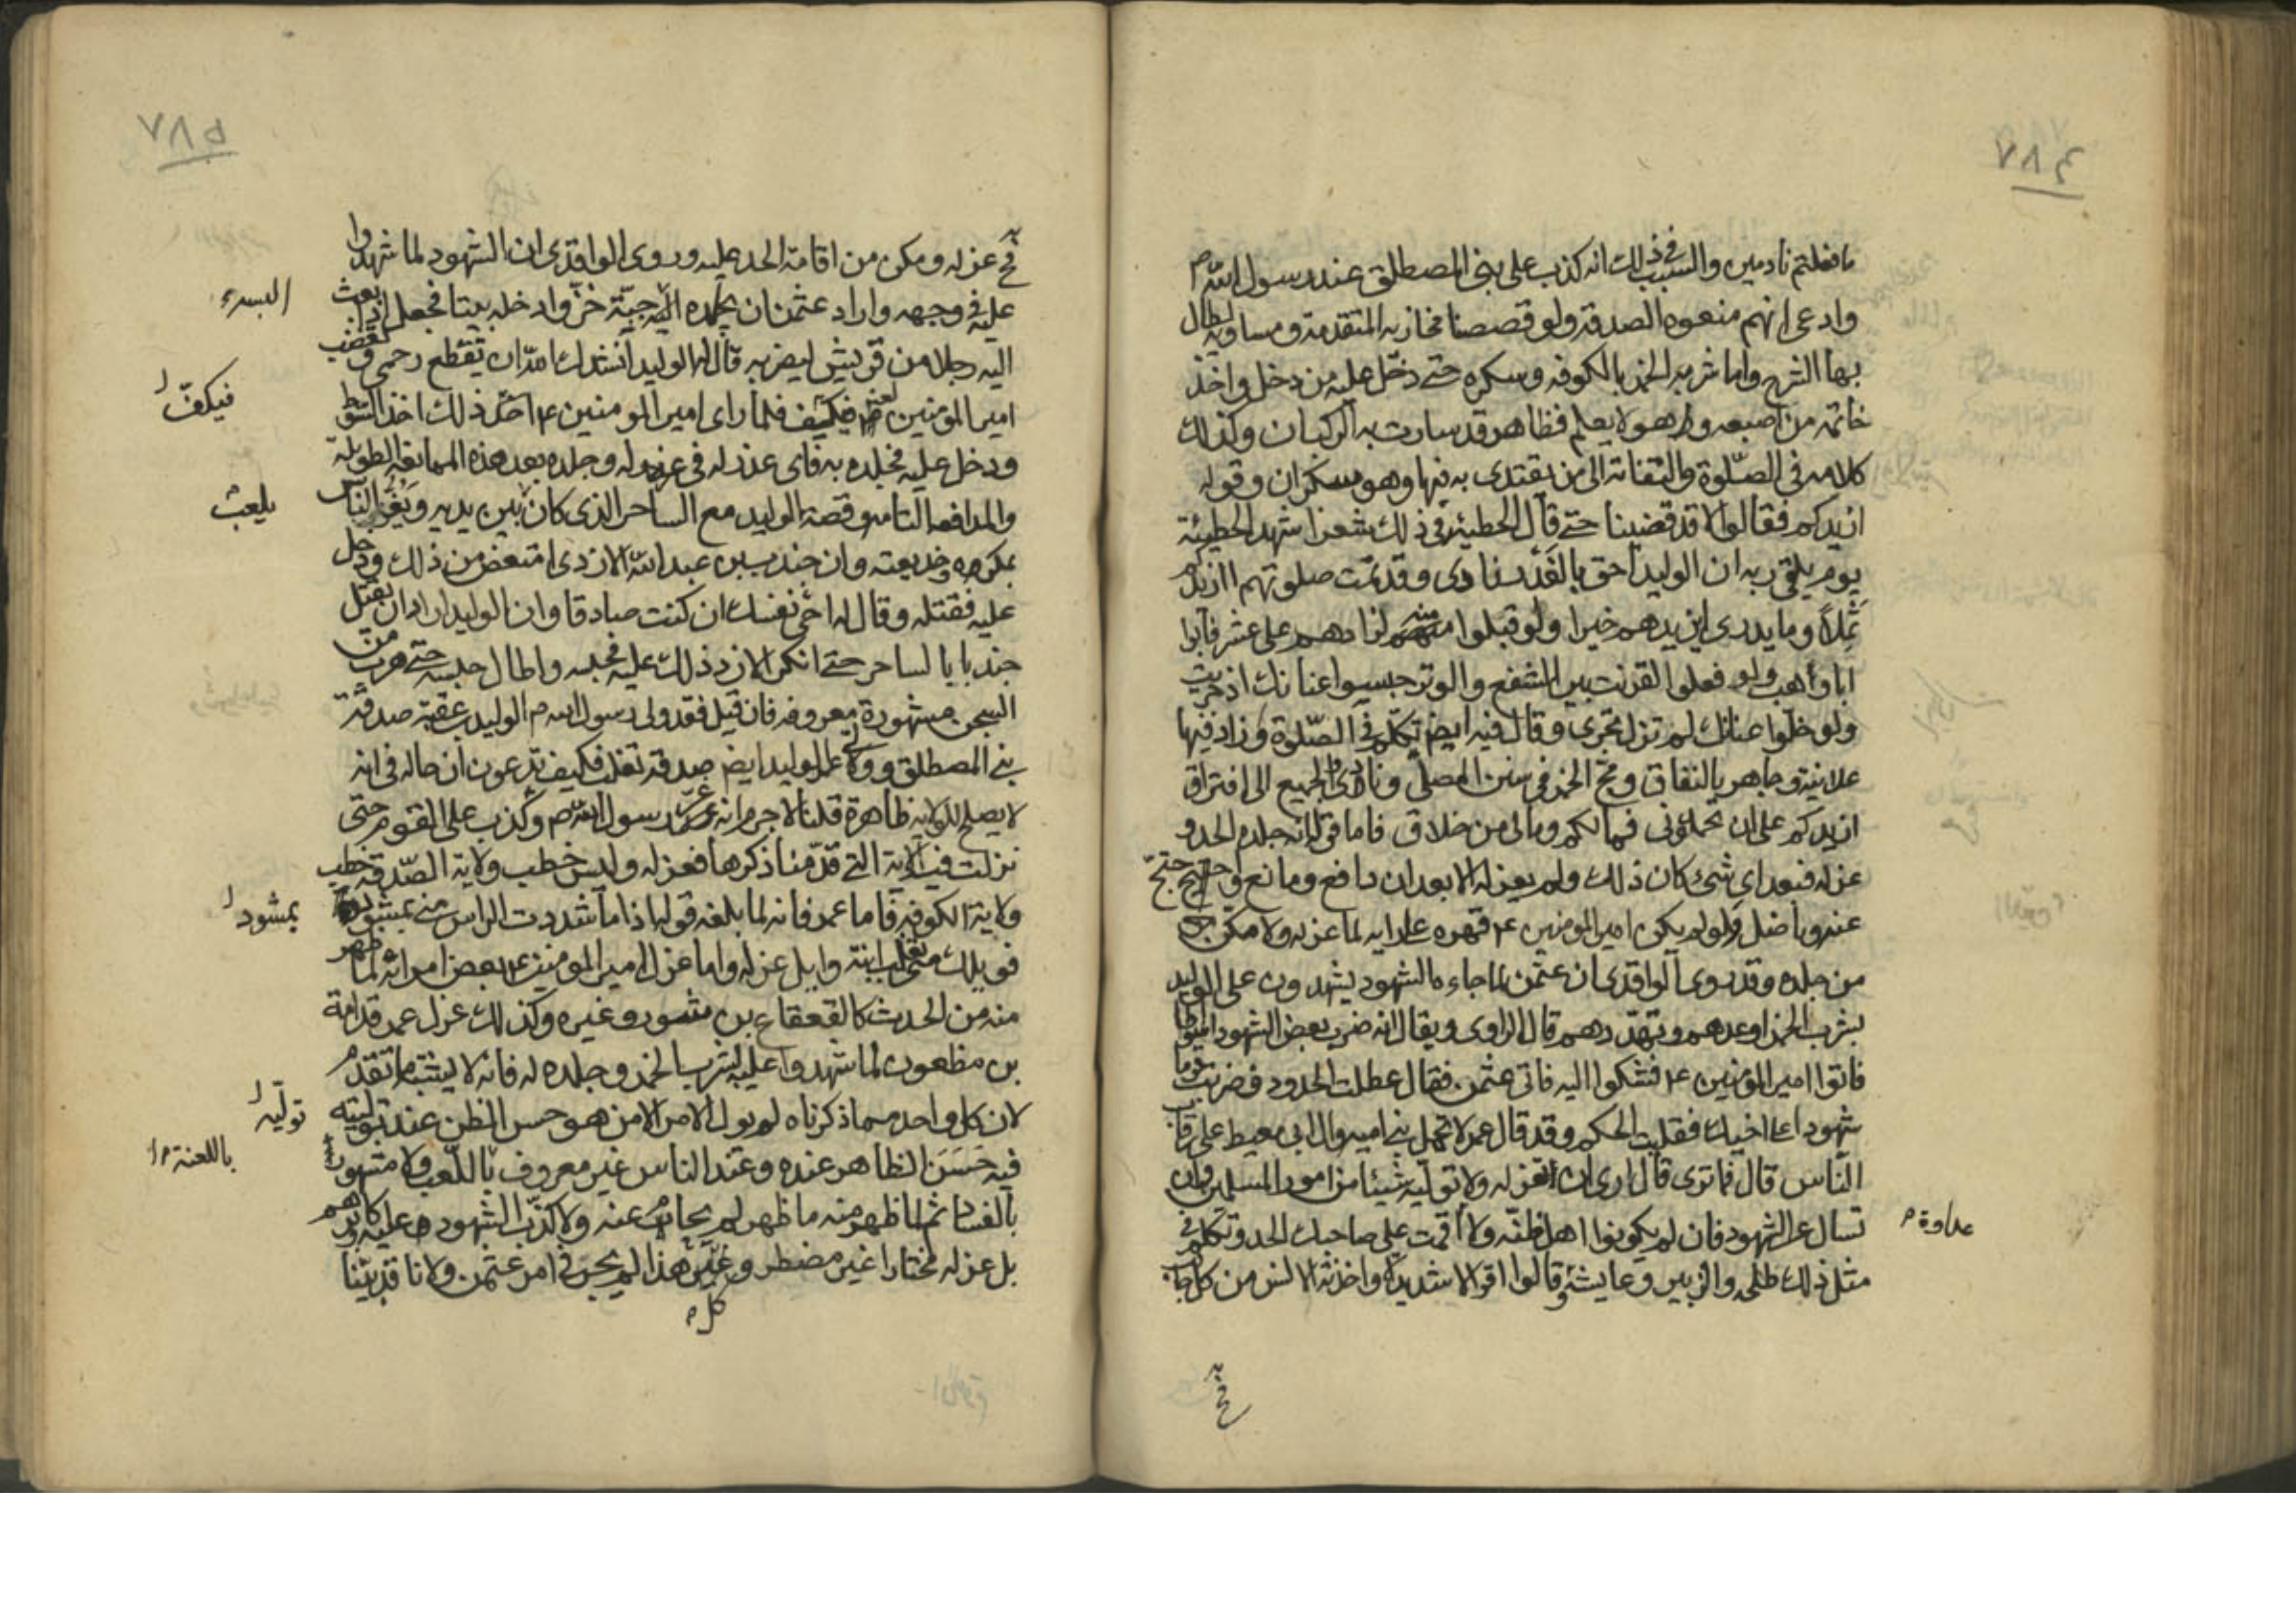 ٤٨٧
ما فعلتم نادمين والسبب في ذلك انه كذب على بنى المصطلق عند رسول الله م
وادعى انهم منعوه الصدقة ولو قصصنا مخازيه المتقدمة ومساويه لطال
بها الشرح واما شربه الخمر بالكوفه وسكره حتى دخل عليه من دخل واخذ
خاتمه من اصبعه وهو لا يعلم فظاهر قد سارت به الركبان وكذلك
كلامه في الصلوة والتفاته الى من يقتدى به فيها وهو سكران وقوله
ازيدكم فقالوا لا قد قضينا حتى قال الحطيئة في ذلك شعرا شهد الحطيئة
يوم يلقى ربه ان الوليد احق بالغدر نادى وقد تمت صلوتهم اازيدكم
ثملا وما يدرى ليزيدهم خيرا ولو قبلوا منه لزادهم على عشر فابوا
ابا وهب ولو فعلوا لقرنت بين الشفع والوتر حبسوا عنانك اذ جريت
ولو خلوا عنانك لم تزل تجرى وقال فيه ايض تكلم في الصلوة وزاد فيها
علانية وجاهر بالنفاق ومج الخمر في سنن المصلى ونادى والجميع الى افتراق
ازيدكم على ان تحمدونى فمالكم ومالى من خلاق فاما قوله انه جلده الحد و
عزله فبعد اى شئ كان ذلك ولم يعزله الا بعد ان دافع ومانع واحتج
عنه وناضل ولو لم يكن امير المؤمنين ع قهره على رايه لما عزله ولا مكن
من جلده وقد روى الواقدى ان عثمن لما جاءه الشهود يشهدون على الوليد
بشرب الخمر اوعدهم وتهددهم قال الراوى ويقال انه ضرب بعض الشهود اسواطا
فاتوا امير المؤمنين ع فشكوا اليه فاتى عثمن فقال عطلت الحدود وضربت قوما
شهودا على اخيك فقلبت الحكم وقد قال عمر لا تحمل بنى اميه وال ابى معيط على رقاب
الناس قال فما ترى قال ارى ان تعزله ولا توليه شيئا من امور المسلمين وان
تسال عن الشهود فان لم يكونوا اهل ظنه ولا اقمت على صاحبك الحد وتكلم في
عداوة م
مثل ذلك طلحه والزبير وعايشه وقالوا اقوالا شديدة واخذته الالسن من كل جانب
٥٨٨
عزله ومكن من اقامة الحد عليه وروى الواقدى ان الشهود لما شهدوا
عليه في وجهه واراد عثمن ان يحده البسه جبة خز وادخله بيتا فجعل اذا بعث
البسه
اليه رجلا من قريش ليضربه قال له الوليد انشدك الله ان تقطع رحمى وتغضب
امير المؤمنين فيكف فلما راى امير المؤمنين ع ذلك اخذ السوط
فيكف
ودخل عليه فجلده به فاى عذر له في عزله وجلده بعد هذه الممانعه الطويلة
والمدافعه التامه وقصة الوليد مع الساحر الذى كان بين يديه ويغر الناس
يلعب
بمكره وخديعته وان جندب بن عبد الله الازدى امتعض من ذلك ودخل
عليه فقتله وقال له احى نفسك ان كنت صادقا وان الوليد اراد ان يقتل
جندبا بالساحر حتى انكر الازد ذلك عليه فحبسه واطال حبسه حتى هرب من
السجن مشهورة معروفه فان قيل فقد ولى رسول الله م الوليد بن عقبة صدقة
بنى المصطلق وولى عمر الوليد ايض صدقة تغلب فكيف تدعون ان حاله في انه
لا يصلح للولاية ظاهرة قلنا لا جرم انه غر رسول الله م وكذب على القوم حتى
نزلت فيه الاية التى قدمنا ذكرها فعزله وليس خطب ولاية الصدقة خطب
ولاية الكوفه فاما عمر فانه لما بلغه قوله اذا ما شددت الراس منى بمشوذ
بمشوذ
فويلك منى تغلب ابنة وايل عزله واما عزل امير المؤمنين ع بعض امرائه لما ظهر
منه من الحدث كالقعقاع بن شور وغيره وكذلك عزل عمر قدامة
بن مظعون لما شهدوا عليه بشرب الخمر وجلده له فانه لا يشبه ما تقدم
لان كل واحد مما ذكرناه لم يول الامر الا من هو حسن الظن عند توليته
توليه
فيه حسن الظاهر عنده وعند الناس غير معروف باللعب ولا مشهور
باللعنة
بالفساد ثم لما ظهر منه ما ظهر لم يحام عنه ولا كذب الشهود عليه وكابرهم
بل عزله مختارا غير مضطر وغير هذا لم يجر في امر عثمن ولانا قد بينا
كل م